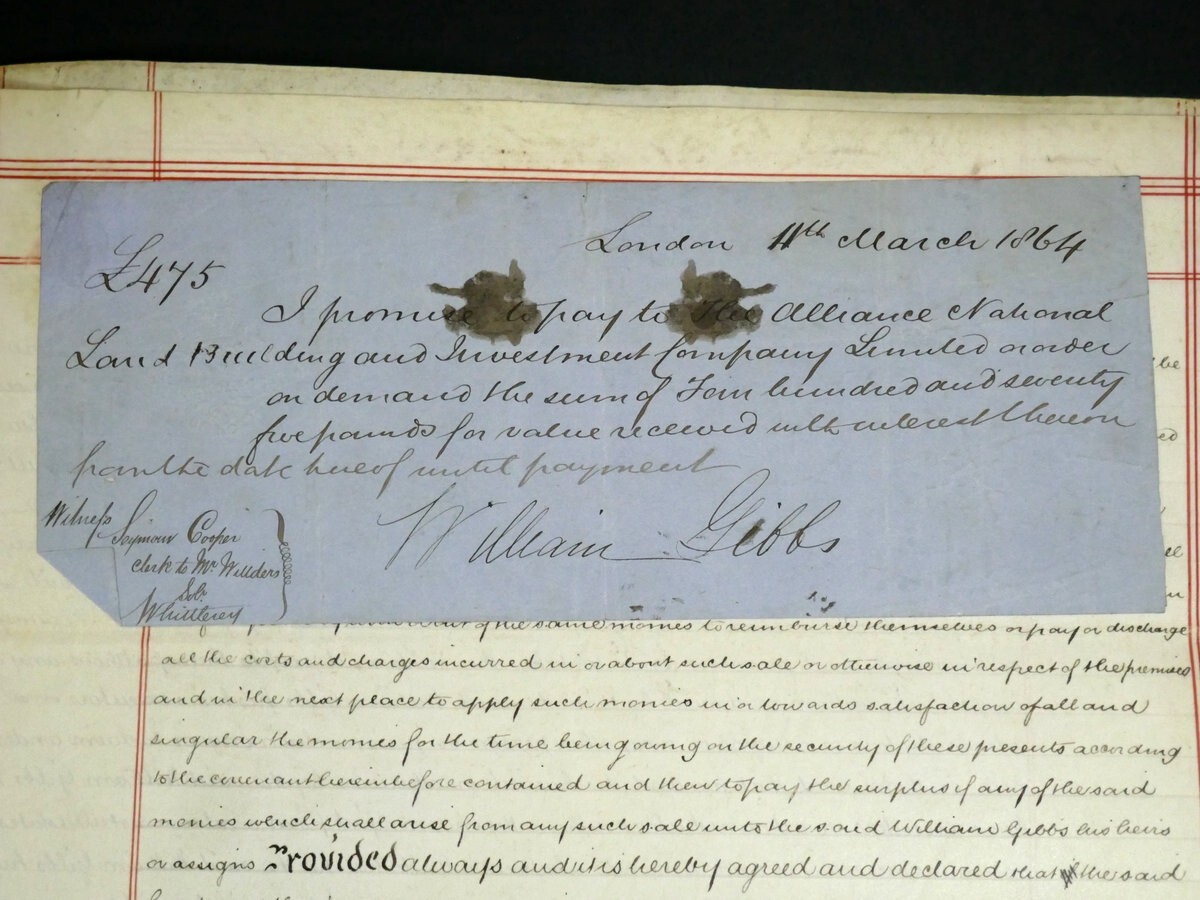 London 11th March 1864
£475
I promise to pay to The Alliance National
Land Building and Investment Company Limited or order
on demand the sum of Four hundred and seventy
five pounds for value received with interest thereon
from the date hereof until payment
William Gibbs
Witness
Seymour Cooper
clerk to Mr
Solr
of the same monies to reimburse themselves or pay or discharge
all the costs and charges incurred in or about such sale or otherwise in respect of the premises
and in the next place to apply such monies in or towards satisfaction of all and
singular the monies for the time being owing on the security of these presents according
to the covenant hereinbefore contained and then to pay the surplus if any of the said
monies which shall arise from any such sale unto the said William Gibbs his heirs
or assigns Provided always and it is hereby agreed and declared that the said